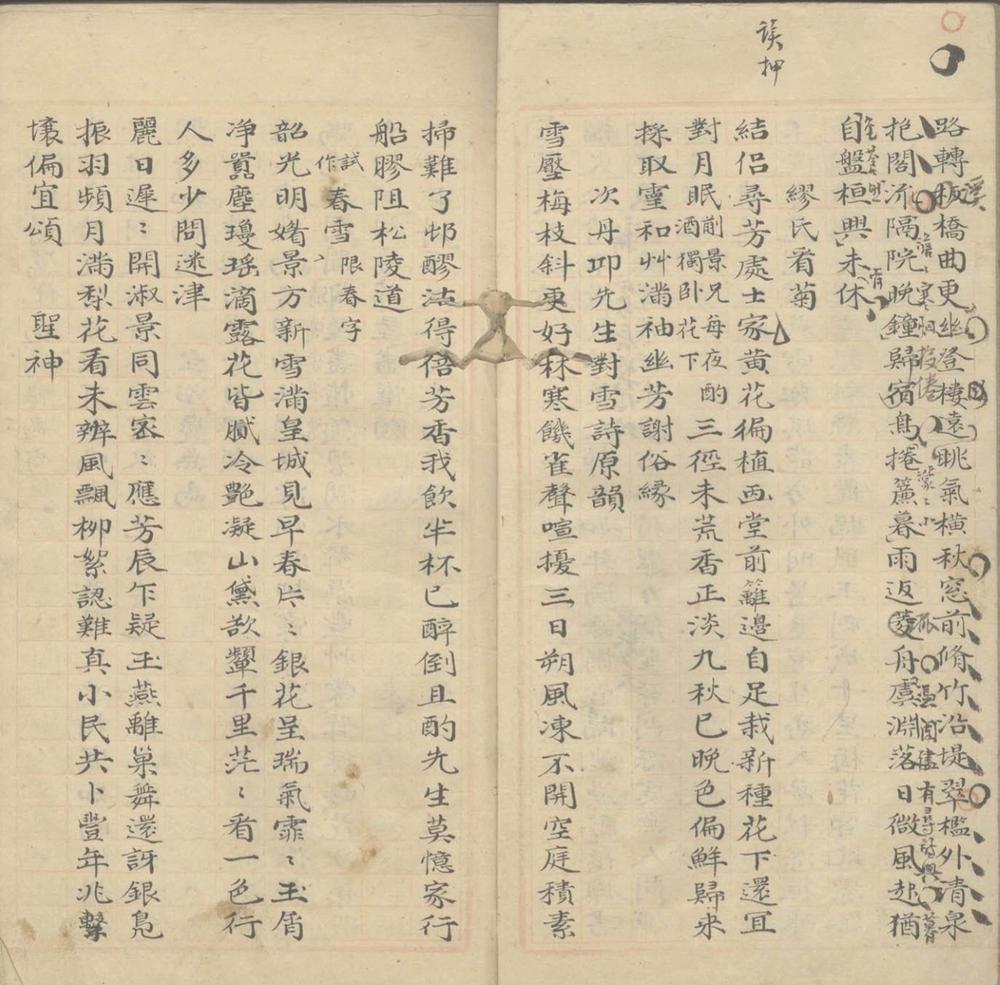 誤押
路轉板橋曲更幽登樓遠眺氣橫秋窓前脩竹沿堤翠檻外清泉
溪
抱閣流隔院晚鐘歸宿鳥捲簾暮雨返菱舟虞淵落日微風起猶
自盤桓興未休
繆氏看菊
結侶尋芳處士家黃花徧植西堂前籬邊自足栽新種花下還宜
對月眠前景兄每夜酌酒獨卧花下三徑未荒香正淡九秋已晚色偏鮮歸來
採取靈和艸滿袖幽芳謝俗緣
次丹邱先生對雪詩原韻
雪壓梅枝斜更好林寒饑雀聲喧擾三日朔風凍不開空庭積素
掃難了邨醪沽得蓓芳香我飲半杯已醉倒且酌先生莫憶家行
船膠阻松陵道
試作春雪限春字
韶光明媚景方新雪滿皇城見早春片〻銀花呈瑞氣霏〻玉屑
淨囂塵瓊瑤滴露花皆膩冷艷凝山黛欲顰千里茫〻看一色行
人多少問迷津
麗日遲〻開淑景同雲密〻應芳辰乍疑玉燕離巢舞還訝銀鳧
振羽頻月滿梨花看未辨風飄柳絮認難真小民共卜豐年兆擊
壤偏宜頌 聖神